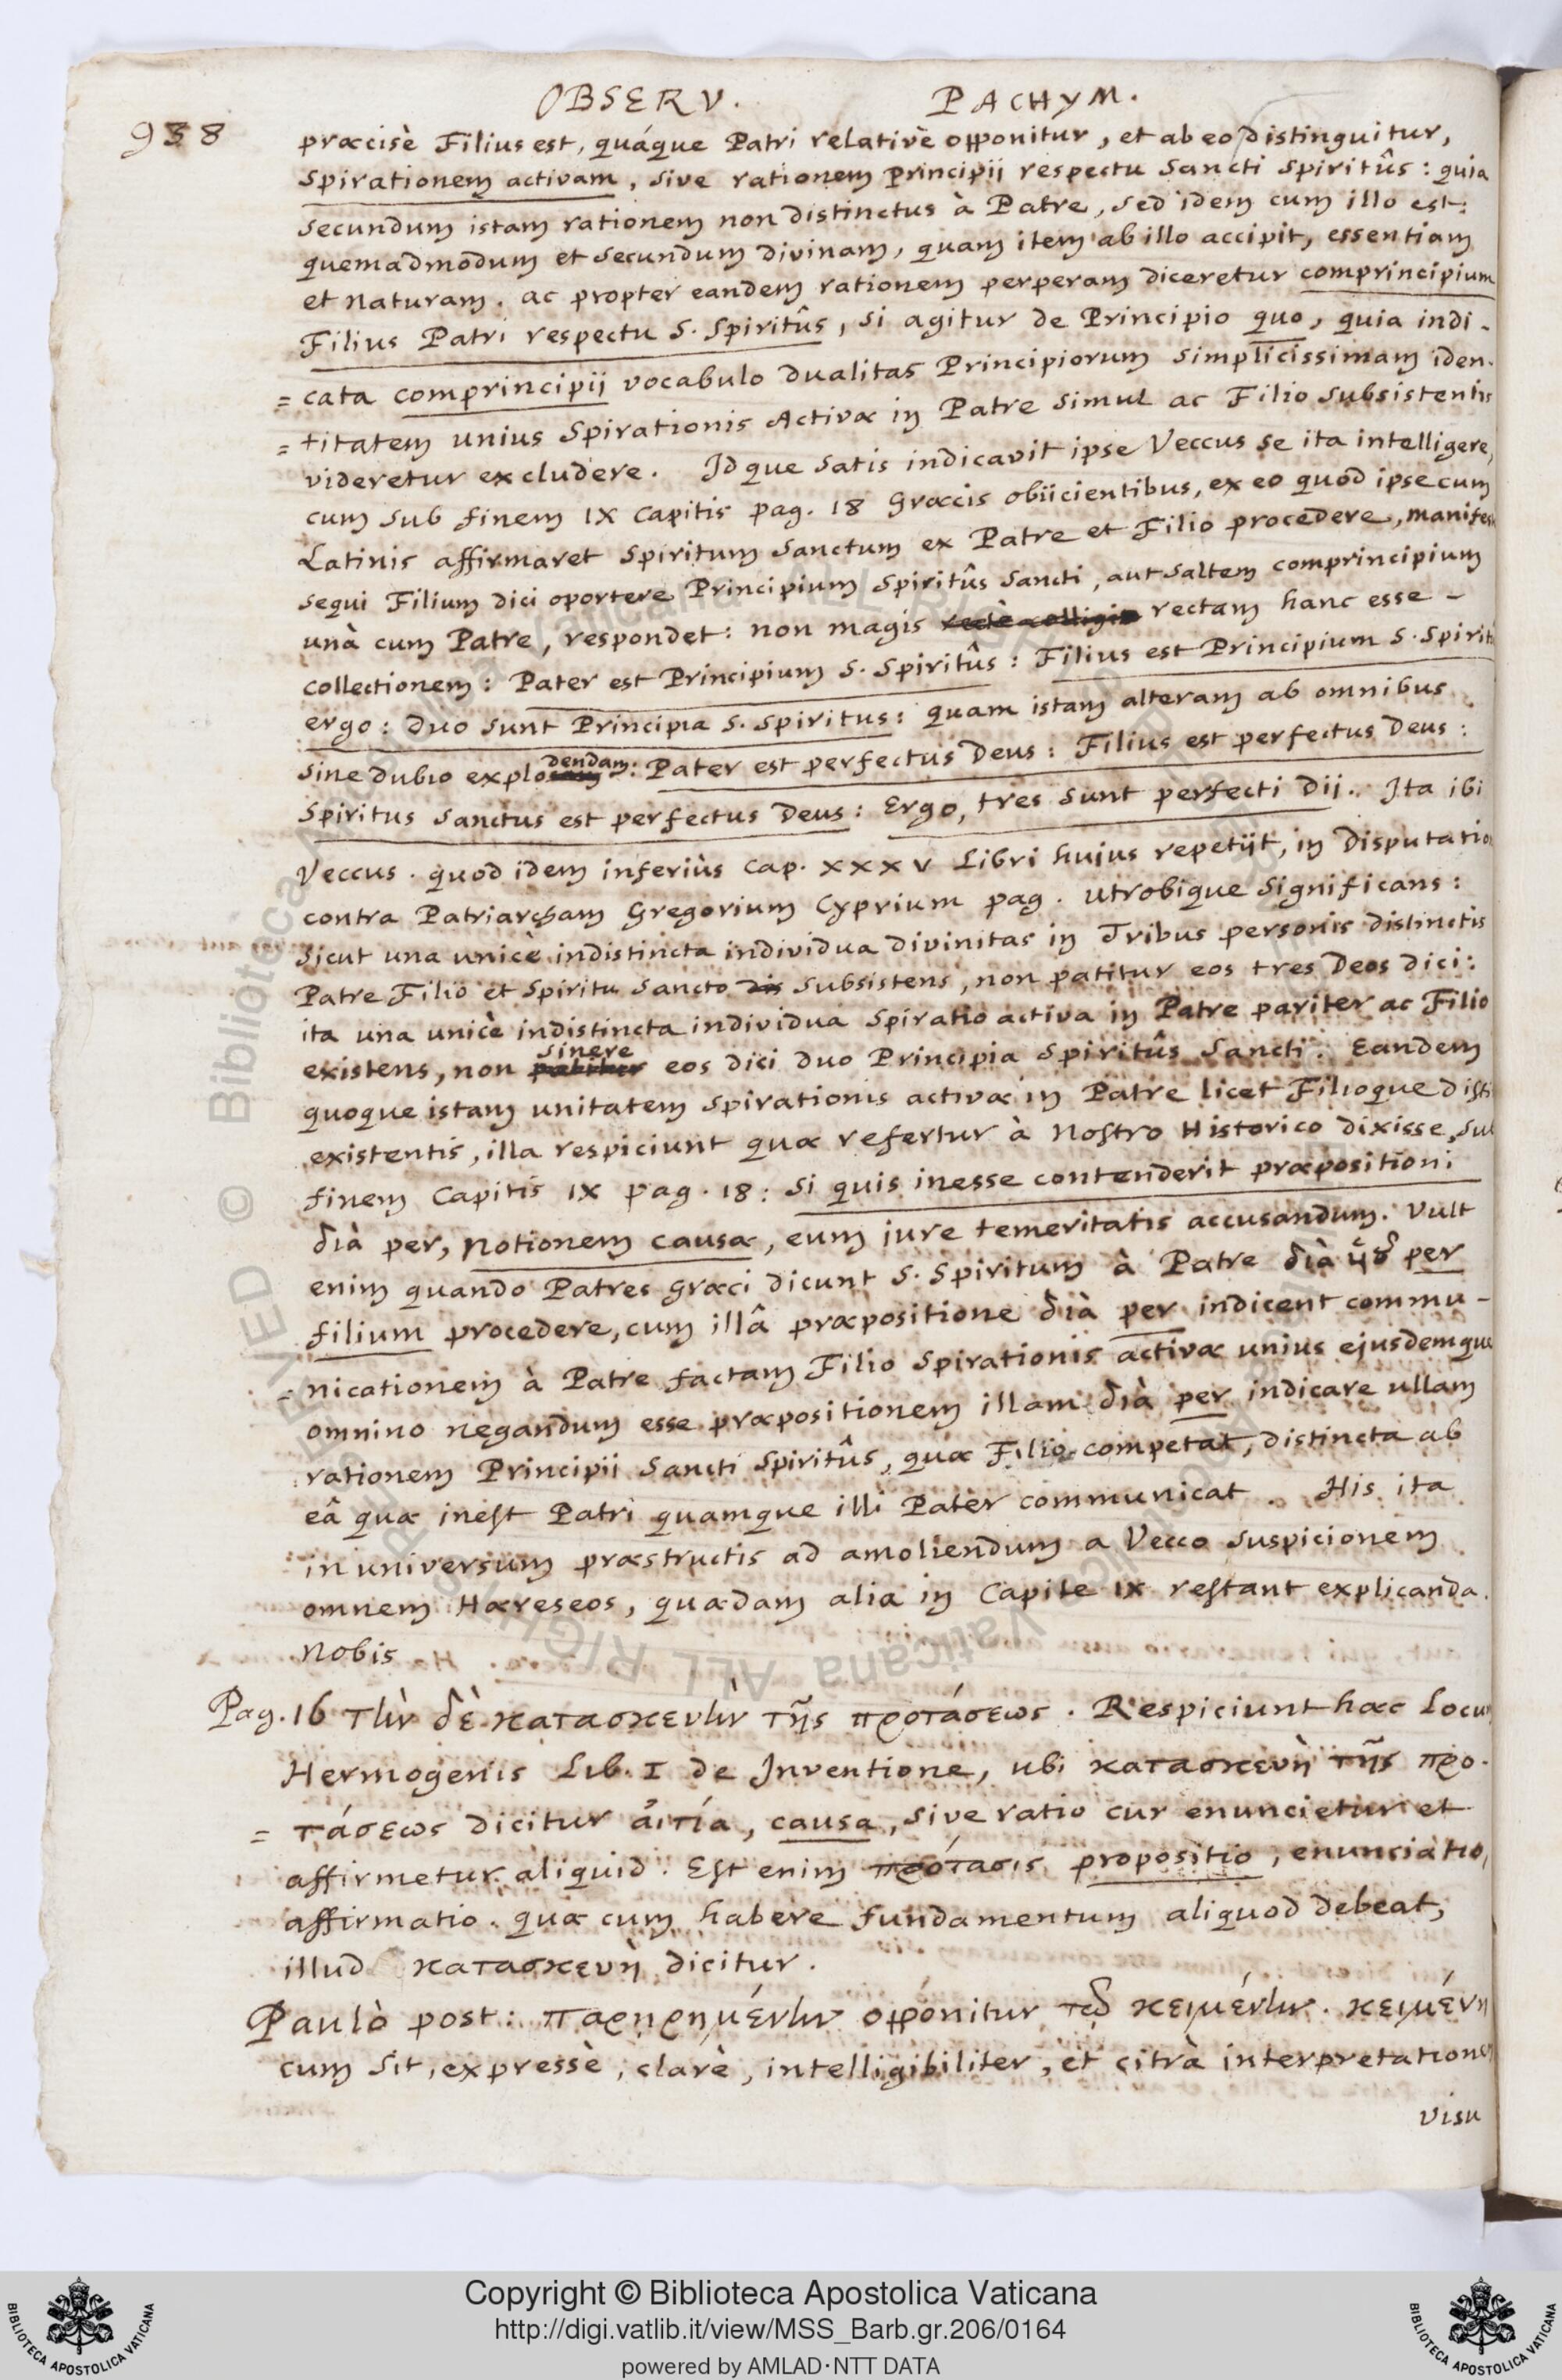 OBSERV. PACHYM.
938
præcisè Filius est, quáque Patri relativè opponitur, et ab eo distinguitur,
Spirationem activam, sive rationem Principii respectu Sancti Spiritûs: quia
secundum istam rationem non distinctus à Patre, sed idem cum illo est:
quemadmodum et secundum divinam, quam item ab illo accipit, essentiam
et naturam. ac propter eandem rationem perperam diceretur comprincipium
Filius Patri respectu S. Spiritûs, si agitur de Principio quo, quia indi-
= cata comprincipii vocabulo dualitas Principiorum simplicissimam iden-
= titatem unius Spirationis Activæ in Patre simul ac Filio subsistentis
videretur excludere. Idque satis indicavit ipse Veccus se ita intelligere,
cum sub finem IX Capitis pag. 18 Græcis obiicientibus, ex eo quod ipse cum
Latinis affirmaret Spiritum Sanctum ex Patre et Filio procedere, manifes
sequi Filium dici oportere Principium Spiritûs Sancti, aut saltem comprincipium
unà cum Patre, respondet: non magis rectam hanc esse -
collectionem: Pater est Principium S. Spiritûs: Filius est Principium S. Spirit
ergo: duo sunt Principia S. Spiritus: quam istam alteram ab omnibus
sine dubio explodendam: Pater est perfectus Deus: Filius est perfectus Deus:
Spiritus Sanctus est perfectus Deus: Ergo, tres sunt perfecti Dii. Ita ibi
Veccus. quod idem inferiùs cap. XXXV Libri huius repetiit, in Disputatio
contra Patriarcham Gregorium Cyprium pag. utrobique significans:
sicut una unicè indistincta individua divinitas in Tribus personis distinctis
Patre Filio et Spiritu Sancto dis subsistens, non patitur eos tres Deos dici:
ita una unicè indistincta individua Spiratio activa in Patre pariter ac Filio
existens, non sinere eos dici duo Principia Spiritûs Sancti. Eandem
quoque istam unitatem spirationis activæ in Patre licet Filioque disti
existentis, illa respiciunt quæ refertur à Nostro Historico dixisse, su
finem Capitis IX pag. 18: si quis inesse contenderit præpositioni
διὰ per, notionem causæ, eum jure temeritatis accusandum. Vult
enim quando Patres Græci dicunt S. Spiritum à Patre διὰ per
filium procedere, cum illâ præpositione διὰ per indicent commu-
= nicationem à Patre factam Filio Spirationis activæ unius ejusdemque
omnino negandum esse præpositionem illam διὰ per indicare ullam
rationem Principii Sancti Spiritûs, quæ Filio competat, distincta ab
eâ quæ inest Patri quamque illi Pater communicat. His ita
in universum præstructis ad amoliendum a Vecco suspicionem
omnem Hæreseos, quædam alia in Capite IX restant explicanda.
Nobis
Pag. 16 τὴν δὲ κατασκευὴν τῆς προτάσεως. Respiciunt hæc Locu
Hermogenis Lib. I de Inventione, ubi κατασκευὴ τῆς προ-
= τάσεως dicitur αἰτία, causa, sive ratio cur enuncietur et
affirmetur aliquid. Est enim πρότασις propositio, enunciatio,
affirmatio. quæ cum habere fundamentum aliquod debeat,
illud κατασκευὴ dicitur.
Paulò post: παρῃρημένην opponitur τῷ κειμένην. κειμένη
cum sit, expressè, clarè, intelligibiliter, et citrà interpretatione
visu
© Biblioteca Apostolica Vaticana ALL RIGHTS RESERVED
Copyright © Biblioteca Apostolica Vaticana
http://digi.vatlib.it/view/MSS_Barb.gr.206/0164
powered by AMLAD·NTT DATA
BIBLIOTECA APOSTOLICA VATICANA
BIBLIOTECA APOSTOLICA VATICANA